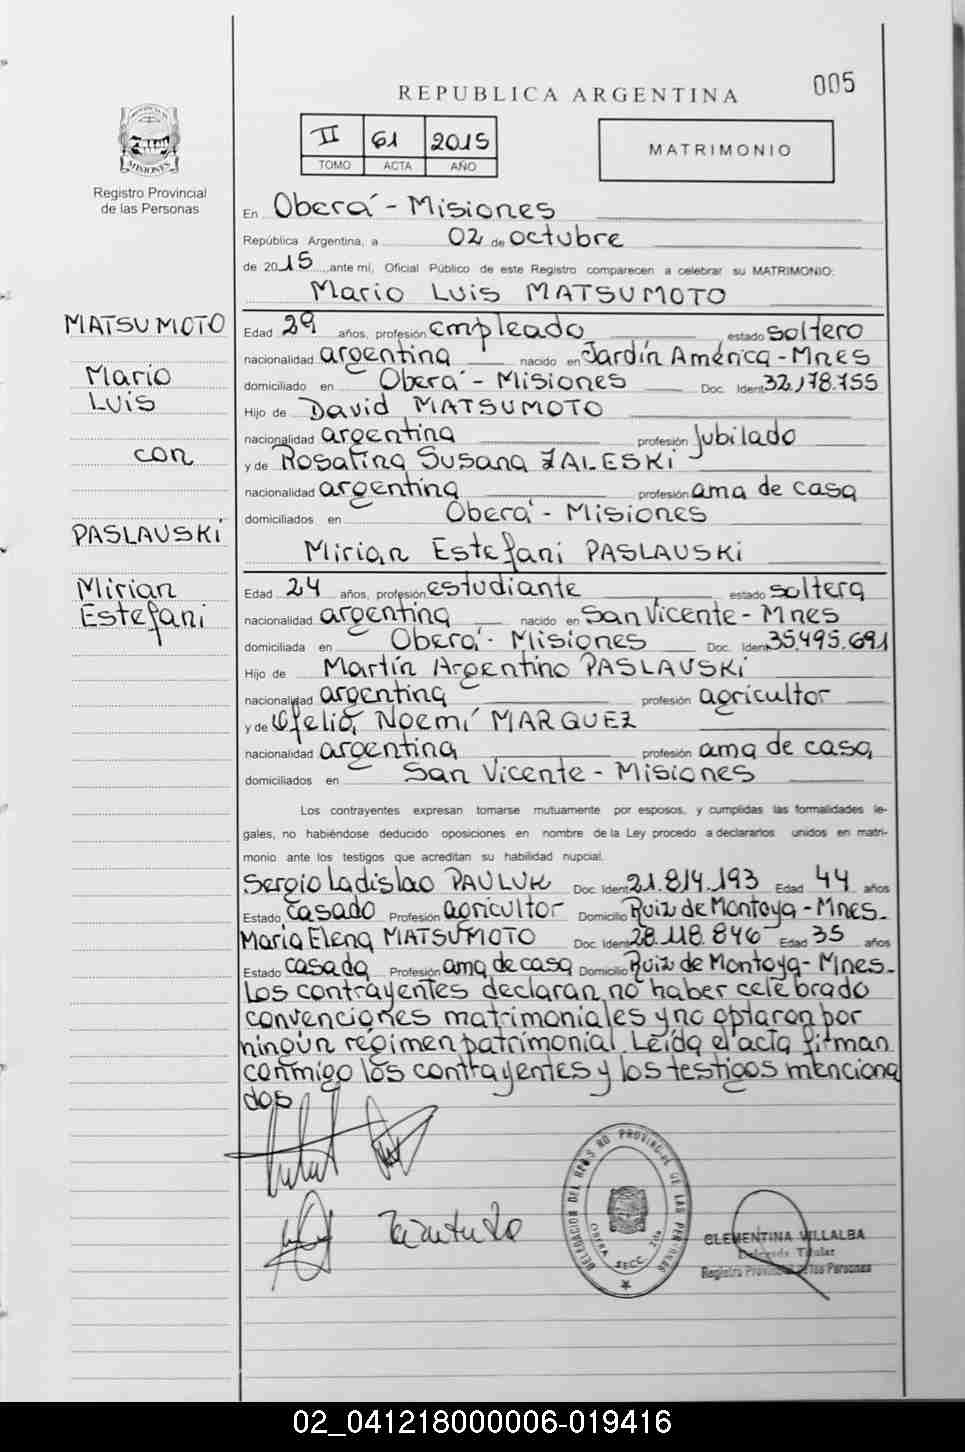 005
REPUBLICA ARGENTINA
II 61 2015
TOMO ACTA AÑO
MATRIMONIO
MISIONES
Registro Provincial
de las Personas
MATSUMOTO
Mario
Luis
con
PASLAUSKi
Mirian
Estefani
En Oberá - Misiones
República Argentina, a 02 de octubre
de 2015, ante mí, Oficial Público de este Registro comparecen a celebrar su MATRIMONIO:
Mario Luis MATSUMOTO
Edad 29 años, profesión empleado estado soltero
nacionalidad argentina nacido en Jardín América - Mnes
domiciliado en Oberá - Misiones Doc. Ident. 32.178.755
Hijo de David MATSUMOTO
nacionalidad argentina profesión jubilado
y de Rosalina Susana ZALESKi
nacionalidad argentina profesión ama de casa
domiciliados en Oberá - Misiones
Mirian Estefani PASLAUSKi
Edad 24 años, profesión estudiante estado soltera
nacionalidad argentina nacido en San Vicente - Mnes
domiciliada en Oberá - Misiones Doc. Ident. 35.495.691
Hijo de Martín Argentino PASLAUSKi
nacionalidad argentina profesión agricultor
y de Ofelia Noemí MARQUEZ
nacionalidad argentina profesión ama de casa
domiciliados en San Vicente - Misiones
Los contrayentes expresan tomarse mutuamente por esposos, y cumplidas las formalidades le-
gales, no habiéndose deducido oposiciones en nombre de la Ley procedo a declararlos unidos en matri-
monio ante los testigos que acreditan su habilidad nupcial.
Sergio Ladislao PAULUK Doc. Ident. 21.814.193 Edad 44 años
Estado casado Profesión agricultor Domicilio Ruiz de Montoya - Mnes.
Maria Elena MATSUMOTO Doc. Ident. 28.118.846 Edad 35 años
Estado casada Profesión ama de casa Domicilio Ruiz de Montoya - Mnes.
Los contrayentes declaran no haber celebrado
convenciones matrimoniales y no optaron por
ningún régimen patrimonial. Leída el acta firman
conmigo los contrayentes y los testigos menciona
dos
DELEGACION DEL REGISTRO PROVINCIAL DE LAS PERSONAS
OBERA SECC. 2da
CLEMENTINA VILLALBA
Delegada Titular
Registro Provincial de las Personas
02_041218000006-019416